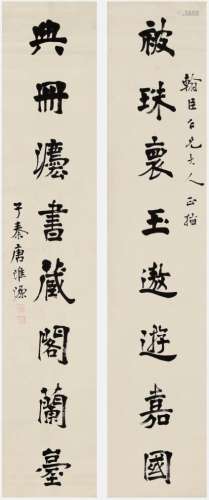 翰臣仁兄大人正措
被珠裹玉遨遊嘉國
典冊灋書藏閣蘭臺
子秦唐維源